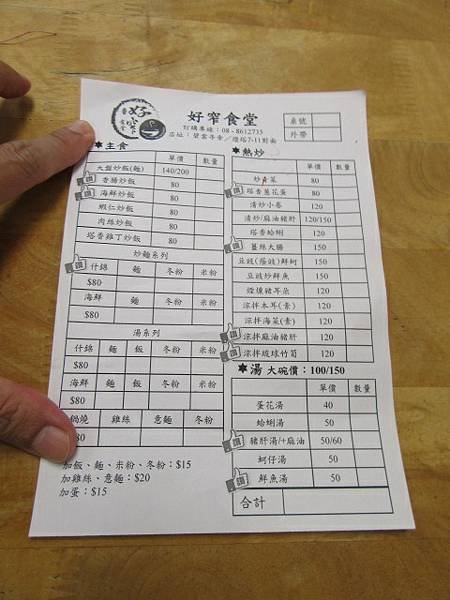 好窄食堂
訂購專線：08-8612733
店址：碧雲寺旁／燈塔7-11對面
桌號
外帶
✱主食
單價 數量
大盤炒飯(麵) 140/200
香腸炒飯 80
海鮮炒飯 80
蝦仁炒飯 80
肉絲炒飯 80
塔香雞丁炒飯 80
炒麵系列
什錦 麵 冬粉 米粉
$80
海鮮 麵 冬粉 米粉
$80
湯系列
什錦 麵 飯 冬粉 米粉
$80
海鮮 麵 飯 冬粉 米粉
$80
鍋燒 雞絲 意麵 冬粉
80
加飯、麵、米粉、冬粉：$15
加雞絲、意麵：$20
加蛋：$15
✱熱炒
單價 數量
炒青菜 80
塔香蔥花蛋 80
清炒小卷 120
清炒/麻油豬肝 120/150
塔香蛤蜊 120
薑絲大腸 150
豆豉(蔭豉)鮮蚵 150
豆豉炒鮮魚 150
煙燻豬耳朵 120
涼拌木耳(素) 120
涼拌海菜(素) 120
涼拌麻油豬肝 120
涼拌琉球竹筍 120
✱湯 大碗價：100/150
單價 數量
蛋花湯 40
蛤蜊湯 50
豬肝湯/+麻油 50/60
蚵仔湯 50
鮮魚湯 50
合計